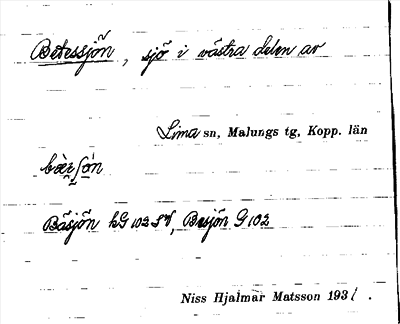 Betessjön, sjö i västra delen av
Lima sn, Malungs tg, Kopp. län
bæ̀rʃǿn
Bäsjön hG 102 SV, Besjön G 102
Niss Hjalmar Matsson 1931.